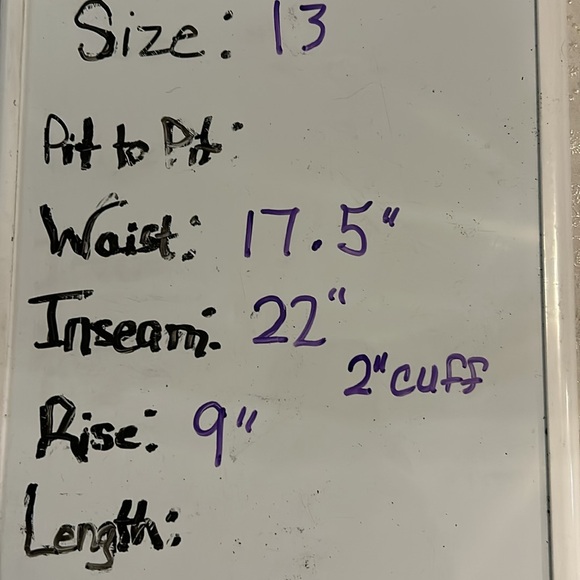 Size: 13
Pit to Pit:
Waist: 17.5"
Inseam: 22"
2" cuff
Rise: 9"
Length: